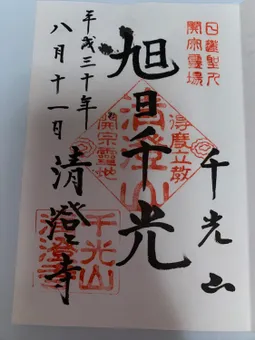 日蓮聖人
開宗霊場
千光山
得度立教
旭日千光
清澄山
開宗霊地
清澄寺
平成三十年
八月十一日
千光山
清澄寺